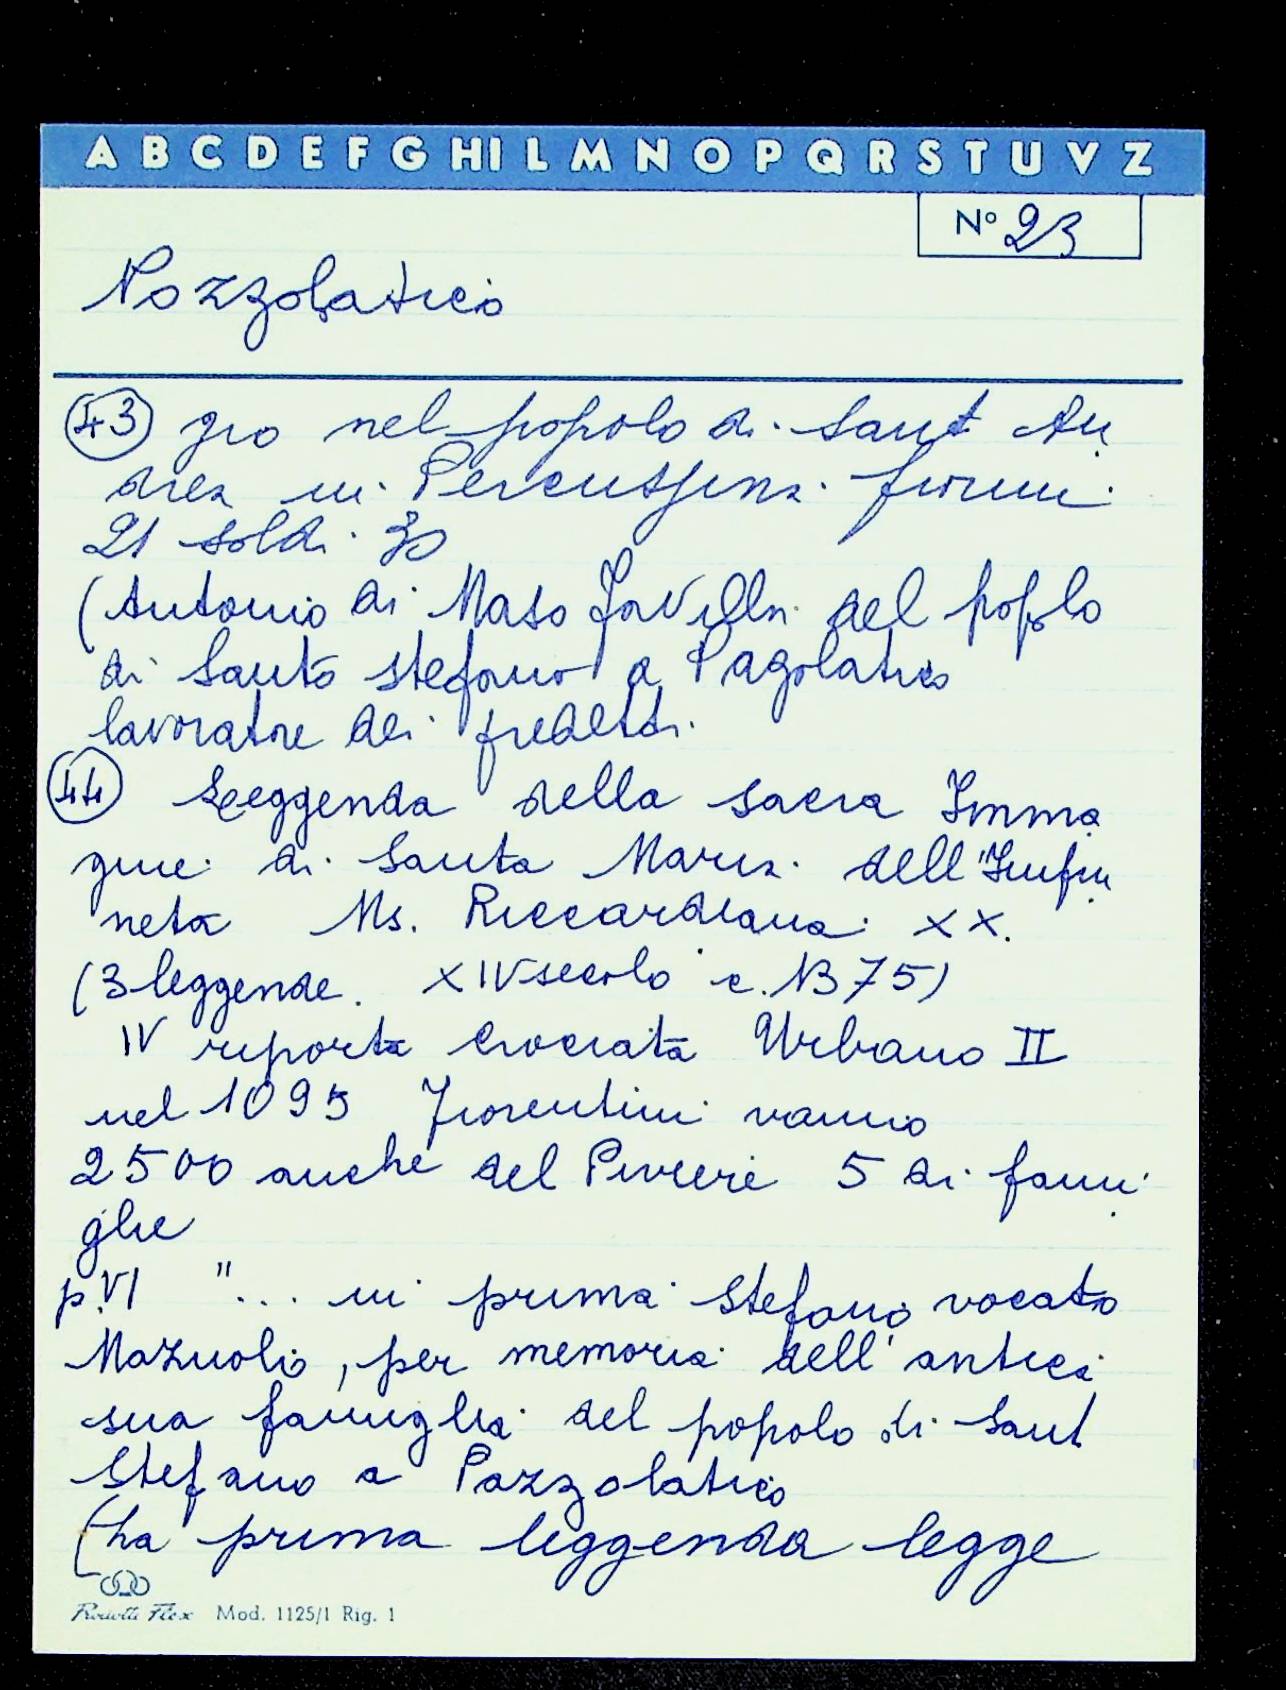 A B C D E F G HI L M N O P Q R S T U V Z
Nº 23
Pozzolatico
43 gio nel popolo di Sant An
drea in Percussina fiorini
21 soldi 30
(Antonio di Maso Favilla del popolo
di Santo Stefano a Pagolatico
lavoratore dei predetti
44 Leggenda della sacra Imma
gine di Santa Maria dell'Impru
neta Ms. Riccardiana XX.
(3 leggende. XIV secolo c. 1375)
IV riporta crociata Urbano II
nel 1095 Fiorentini vanno
2500 anche del Piviere 5 di fami
glie
p.VI "... in prima Stefano vocato
Mazuolo, per memoria dell'antica
sua famiglia del popolo di Sant
Stefano a Pazzolatico
(ha prima leggenda legge
Mod. 1125/1 Rig. 1